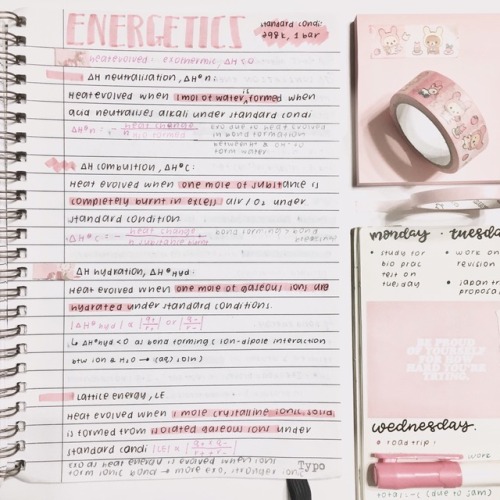 ENERGETICS
standard condi
298K, 1 bar
heat evolved : exothermic, ΔH<0
ΔH neutralisation, ΔHᶿn:
Heat evolved when 1 mol of water formed when
acid neutralises alkali under standard condi
ΔHᶿn = - heat change / n H₂O formed
exo due to heat evolved
in bond formation
between H⁺ & OH⁻ to
form water
ΔH combustion, ΔHᶿc:
Heat evolved when one mole of substance is
completely burnt in excess air / O₂ under
standard condition
ΔHᶿc = - heat change / n substance burn
bond forming > bond
breaking
ΔH hydration, ΔHᶿhyd:
Heat evolved when one mole of gaseous ions are
hydrated under standard conditions.
|ΔHᶿhyd| ∝
↳ ΔHᶿhyd <0 as bond forming (ion-dipole interaction
btw ion & H₂O → (aq) ion)
Lattice energy, LE
Heat evolved when 1 mole crystalline ionic solid
is formed from isolated gaseous ions under
standard condi |LE| ∝
exo as heat energy is evolved when ionic
form ionic bond → more exo, stronger ionic
Typo
monday · tuesda
• study for
bio prac
test on
tuesday
• work on
revision
• japan tr
proposal
BE PROUD
OF YOURSELF
FOR HOW
HARD YOU'RE
TRYING.
wednesday.
# roadtrip!
work
(due to jam)